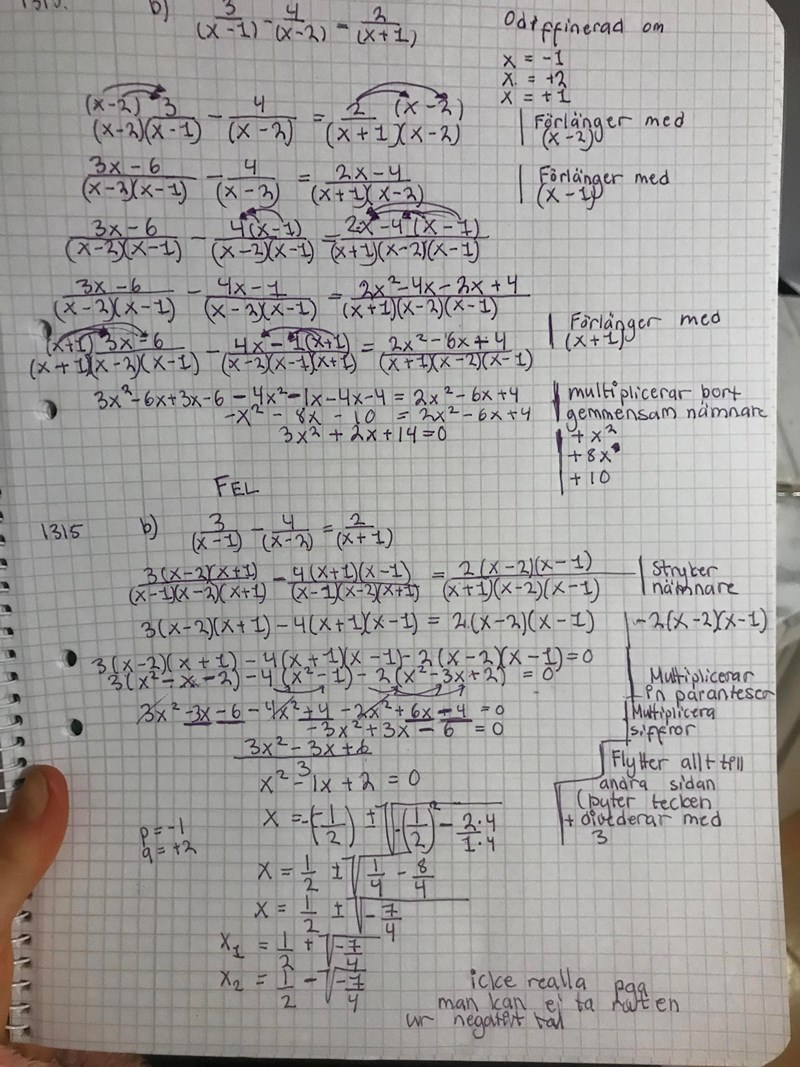 1315. b) 3/(x-1) - 4/(x-2) = 2/(x+1)
Odiffinerad om
x = -1
x = +2
x = +1
(x-2) 3/(x-2)(x-1) - 4/(x-2) = 2 (x-2)/(x+1)(x-2) | Förlänger med (x-2)
3x-6/(x-2)(x-1) - 4/(x-2) = 2x-4/(x+1)(x-2) | Förlänger med (x-1)
3x-6/(x-2)(x-1) - 4(x-1)/(x-2)(x-1) = 2x-4(x-1)/(x+1)(x-2)(x-1)
3x-6/(x-2)(x-1) - 4x-1/(x-2)(x-1) = 2x²-4x-2x+4/(x+1)(x-2)(x-1)
| Förlänger med (x+1)
(x+1) 3x-6/(x+1)(x-2)(x-1) - 4x-1(x+1)/(x-2)(x-1)(x+1) = 2x²-6x+4/(x+1)(x-2)(x-1)
3x²-6x+3x-6-4x²-1x-4x-4 = 2x²-6x+4 | multiplicerar bort
-x²-8x-10 = 2x²-6x+4 gemmensam nämnare
3x²+2x+14=0 | +x²
+8x
+10
FEL
1315 b) 3/(x-1) - 4/(x-2) = 2/(x+1)
3(x-2)(x+1)/(x-1)(x-2)(x+1) - 4(x+1)(x-1)/(x-1)(x-2)(x+1) = 2(x-2)(x-1)/(x+1)(x-2)(x-1) | Stryker nämnare
3(x-2)(x+1)-4(x+1)(x-1) = 2(x-2)(x-1) | -2(x-2)(x-1)
3(x-2)(x+1)-4(x+1)(x-1)-2(x-2)(x-1)=0
3(x²-x-2)-4(x²-1)-2(x²-3x+2) = 0
Multiplicerar
in parantesea
3x²-3x-6-4x²+4-2x²+6x-4=0
Multiplicera
siffror
-3x²+3x-6=0
3x²-3x+6
3
Flytter allt till
andra sidan
(byter tecken
+ divederar med
3
x²-1x+2=0
p=-1
q=+2
x = -(-1/2) ± √-(1/2)² - 2·4/1·4
x = 1/2 ± √1/4 - 8/4
x = 1/2 ± √-7/4
x₁ = 1/2 + √-7/4
x₂ = 1/2 - √-7/4
icke realla pga
man kan ej ta ruten
ur negativt tal